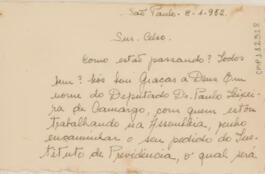 São Paulo - 8-1-982.
Snr. Celso.
Como estão passando? Todos
bem? Nós bem Graças a Deus. Em
nome do Deputado Dr. Paulo
ra de Camargo, com quem estou
trabalhando na Assembléia, venho
encaminhar o seu pedido do Ins-
tituto de Previdência, o qual será